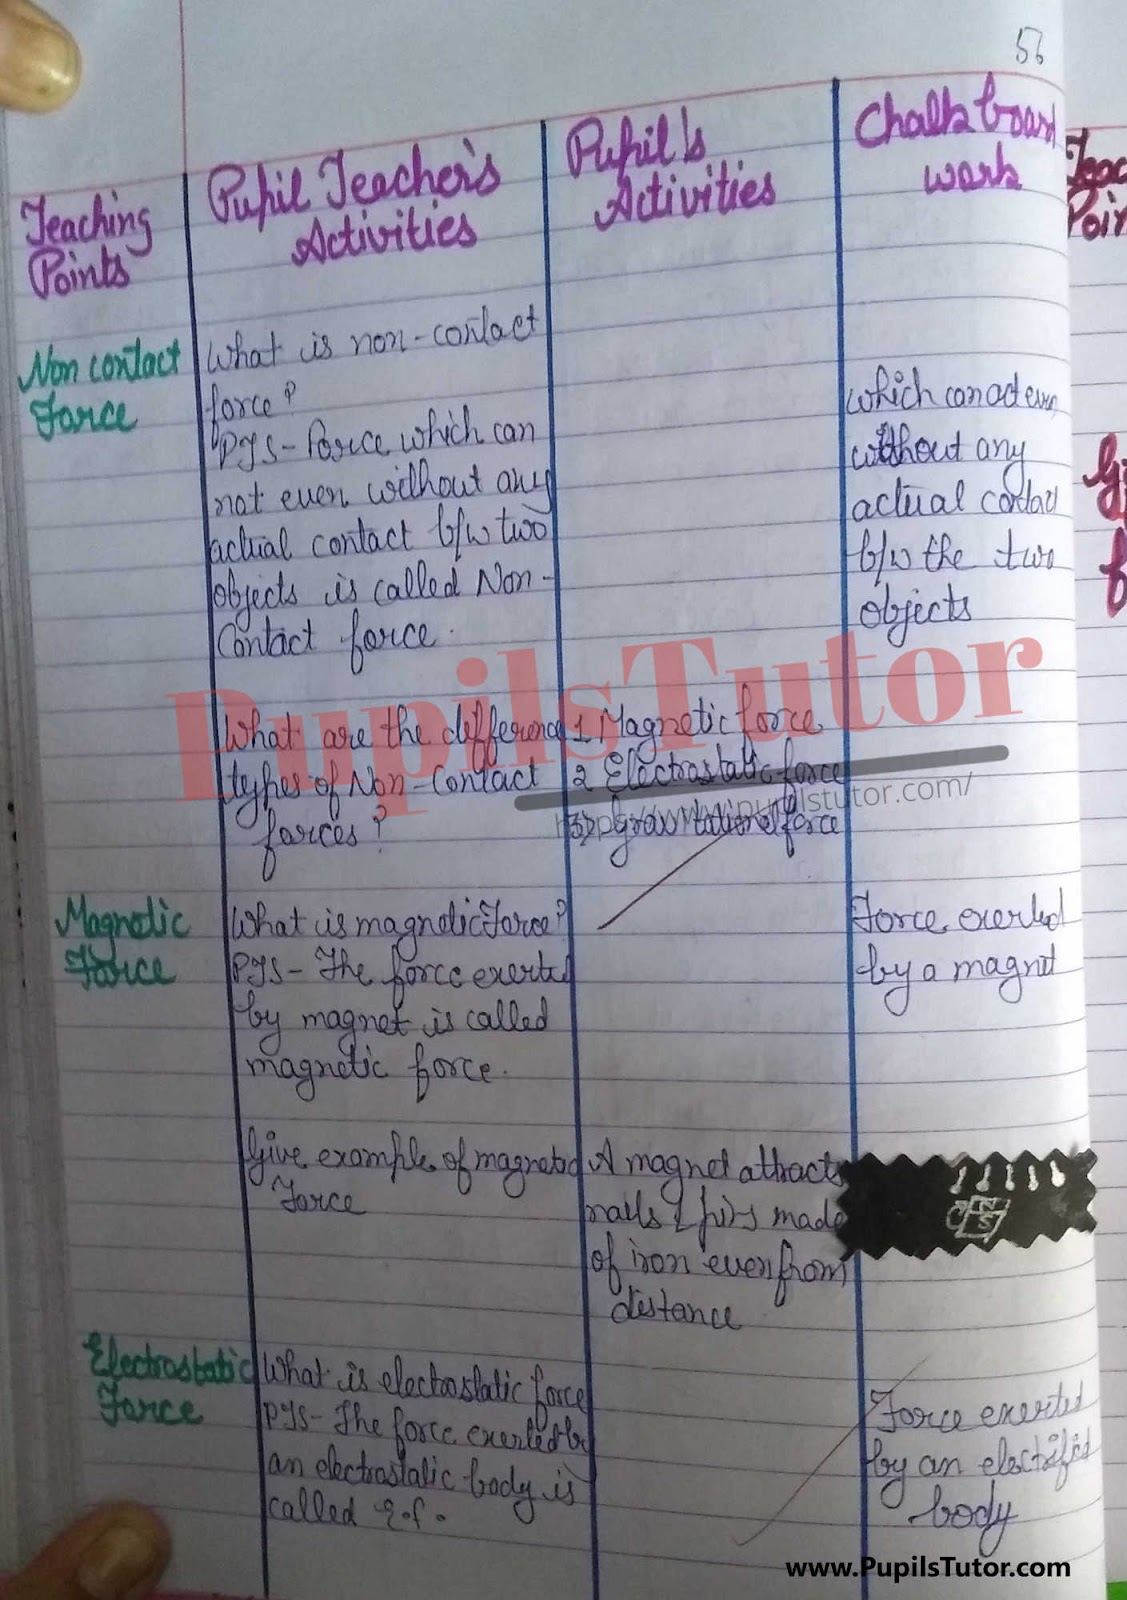 56
Teaching
Points
Pupil Teacher's
Activities
Pupil's
Activities
Chalk board
work
Non contact
Force
What is non-contact
force?
PTS - Force which can
not even without any
actual contact b/w two
objects is called Non-
Contact force.
which can act even
without any
actual contact
b/w the two
objects
What are the difference
types of Non-Contact
forces?
1 Magnetic force
2 Electrostatic force
3) gravitational force
PupilsTutor
https://www.pupilstutor.com/
Magnetic
Force
What is magnetic Force?
PTS - The force exerted
by magnet is called
magnetic force.
Force exerted
by a magnet
Give example of magnetic
Force
A magnet attracts
nails & pins made
of iron even from
distance
N
S
Electrostatic
Force
What is electrostatic force
PTS - The force exerted by
an electrostatic body is
called E.f.
Force exerted
by an electrified
body
www.PupilsTutor.com